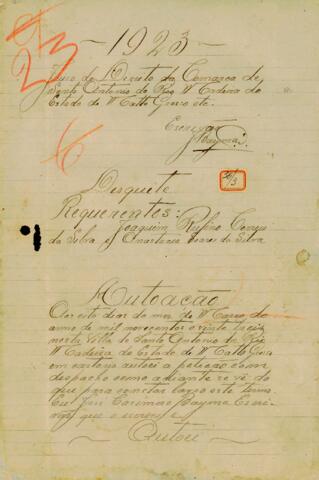 1923
23
6
Juiso de Direito da Comarca de
Santo Antonio do Rio Madeira do
Estado de Matto Grosso etc.
Escrivão
Bayma
Desquite
20/3
Requerentes:
Joaquim Rufino
da Silva e Anastacia Soares da Silva
Autoação
Aos oito dias do mez de Março do
anno de mil novecentos e vinte trez
nesta Villa de Santo Antonio do Rio
Madeira do Estado de Matto Grosso
em cartorio autoei a petição com
despacho como adiante se vê do
que para constar lavro este termo
Eu José Bayma Escri-
vão que o escrevi e
Autoei